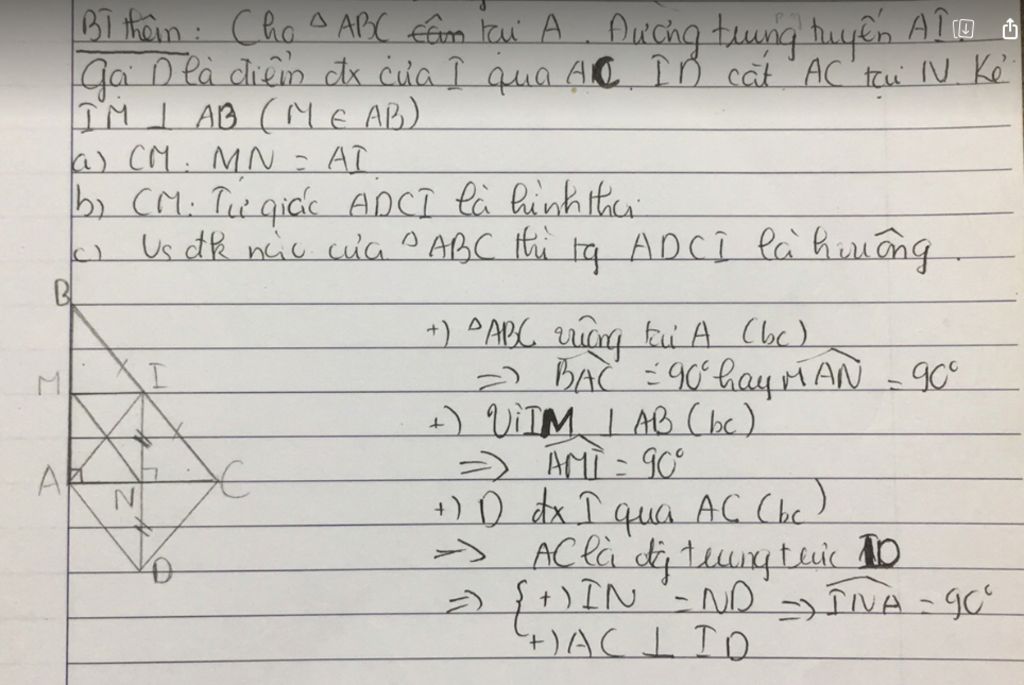 BT thêm : Cho △ABC cân tại A . Đường trung tuyến AI.
Gọi D là điểm đx của I qua AC. ID cắt AC tại N Kẻ
IM ⊥ AB ( M ∈ AB )
a) CM : MN = AI
b) CM : Tứ giác ADCI là hình thoi
c) Vs đk nào của △ABC thì tg ADCI là h vuông .
B
M
I
A
N
C
D
+) △ABC vuông tại A (bc)
=> BAC = 90° hay MAN = 90°
+) Vì IM ⊥ AB ( bc )
=> AMI = 90°
+) D đx I qua AC ( bc )
=> AC là đg trung trực ID
=> { +) IN = ND => INA = 90°
+) AC ⊥ ID